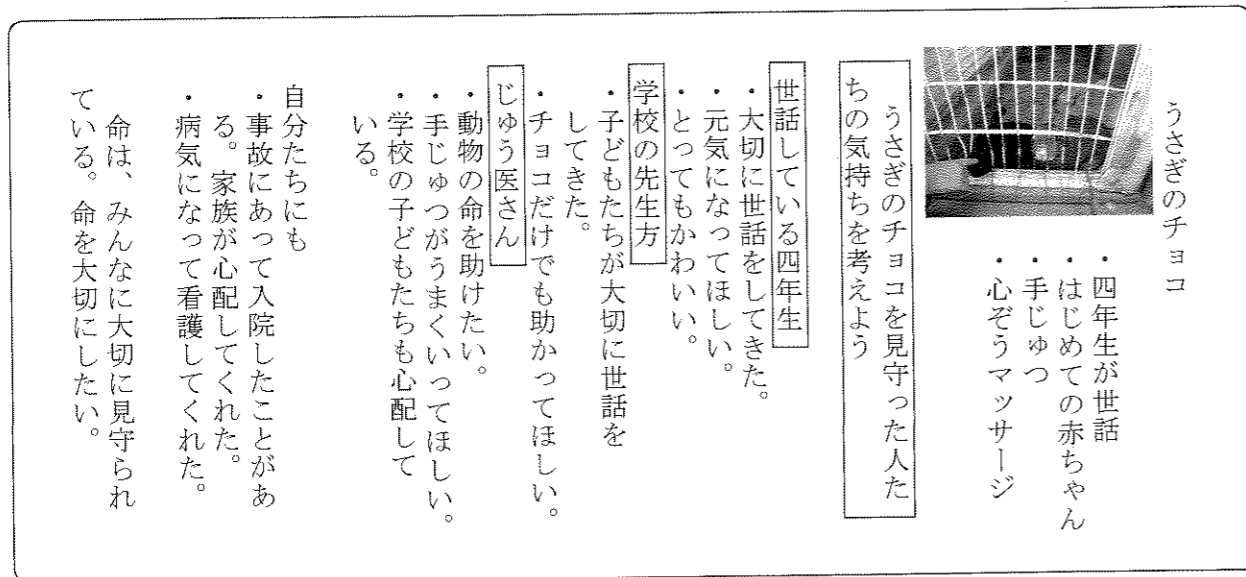 うさぎのチョコ
・四年生が世話
・はじめての赤ちゃん
・手じゅつ
・心ぞうマッサージ
うさぎのチョコを見守った人た
ちの気持ちを考えよう
世話している四年生
・大切に世話をしてきた。
・元気になってほしい。
・とってもかわいい。
学校の先生方
・子どもたちが大切に世話を
してきた。
・チョコだけでも助かってほしい。
じゅう医さん
・動物の命を助けたい。
・手じゅつがうまくいってほしい。
・学校の子どもたちも心配して
いる。
自分たちにも
・事故にあって入院したことがあ
る。家族が心配してくれた。
・病気になって看護してくれた。
命は、みんなに大切に見守られ
ている。命を大切にしたい。